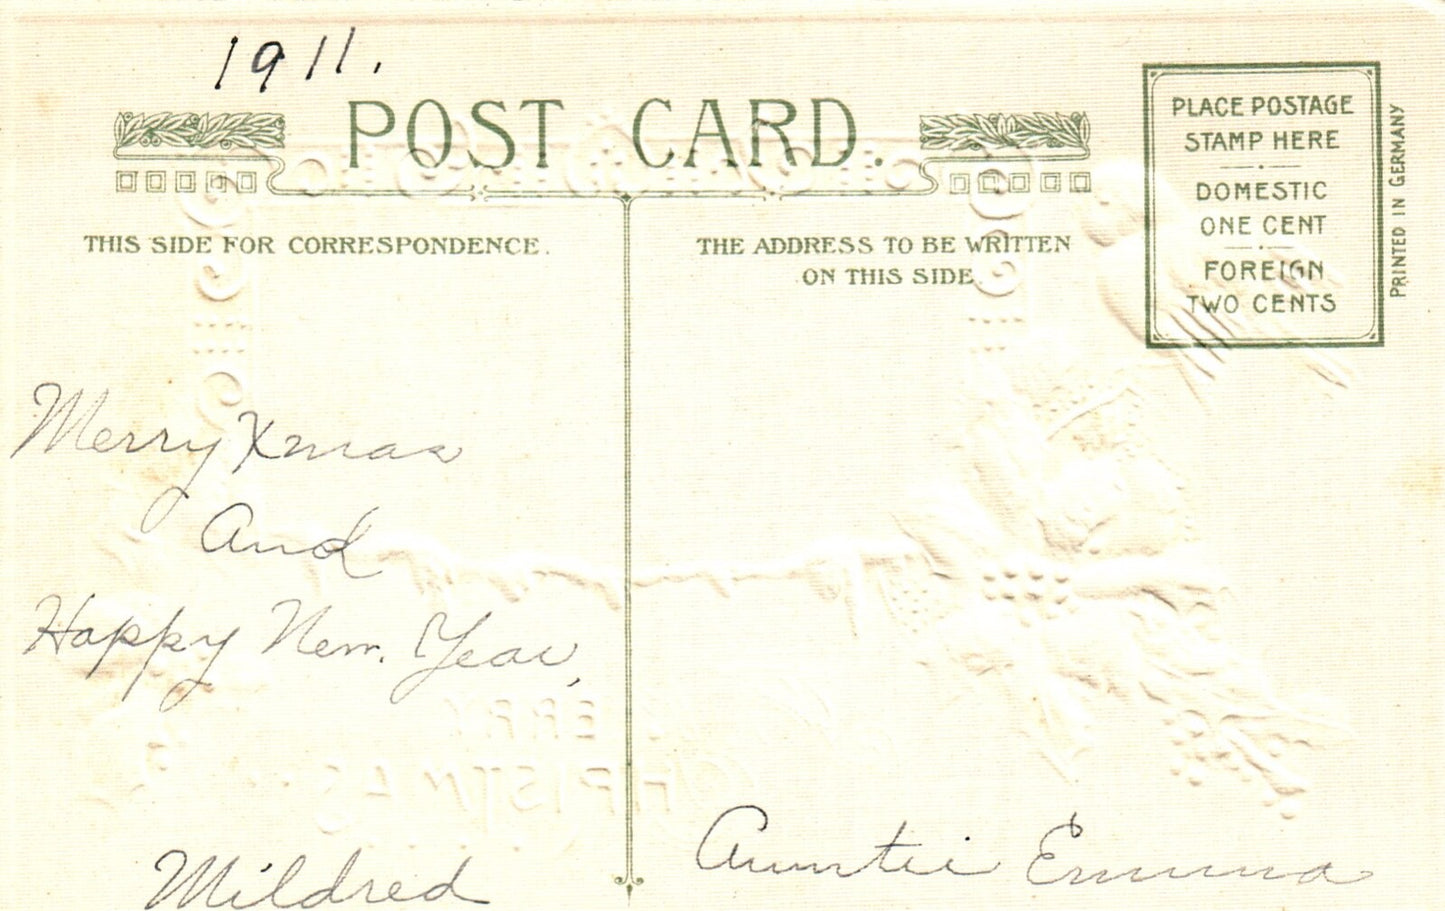 1911.
POST CARD.
THIS SIDE FOR CORRESPONDENCE.
THE ADDRESS TO BE WRITTEN
ON THIS SIDE
PLACE POSTAGE
STAMP HERE
DOMESTIC
ONE CENT
FOREIGN
TWO CENTS
PRINTED IN GERMANY
Merry Xmas
And
Happy New. Year,
Mildred
Auntie Emma